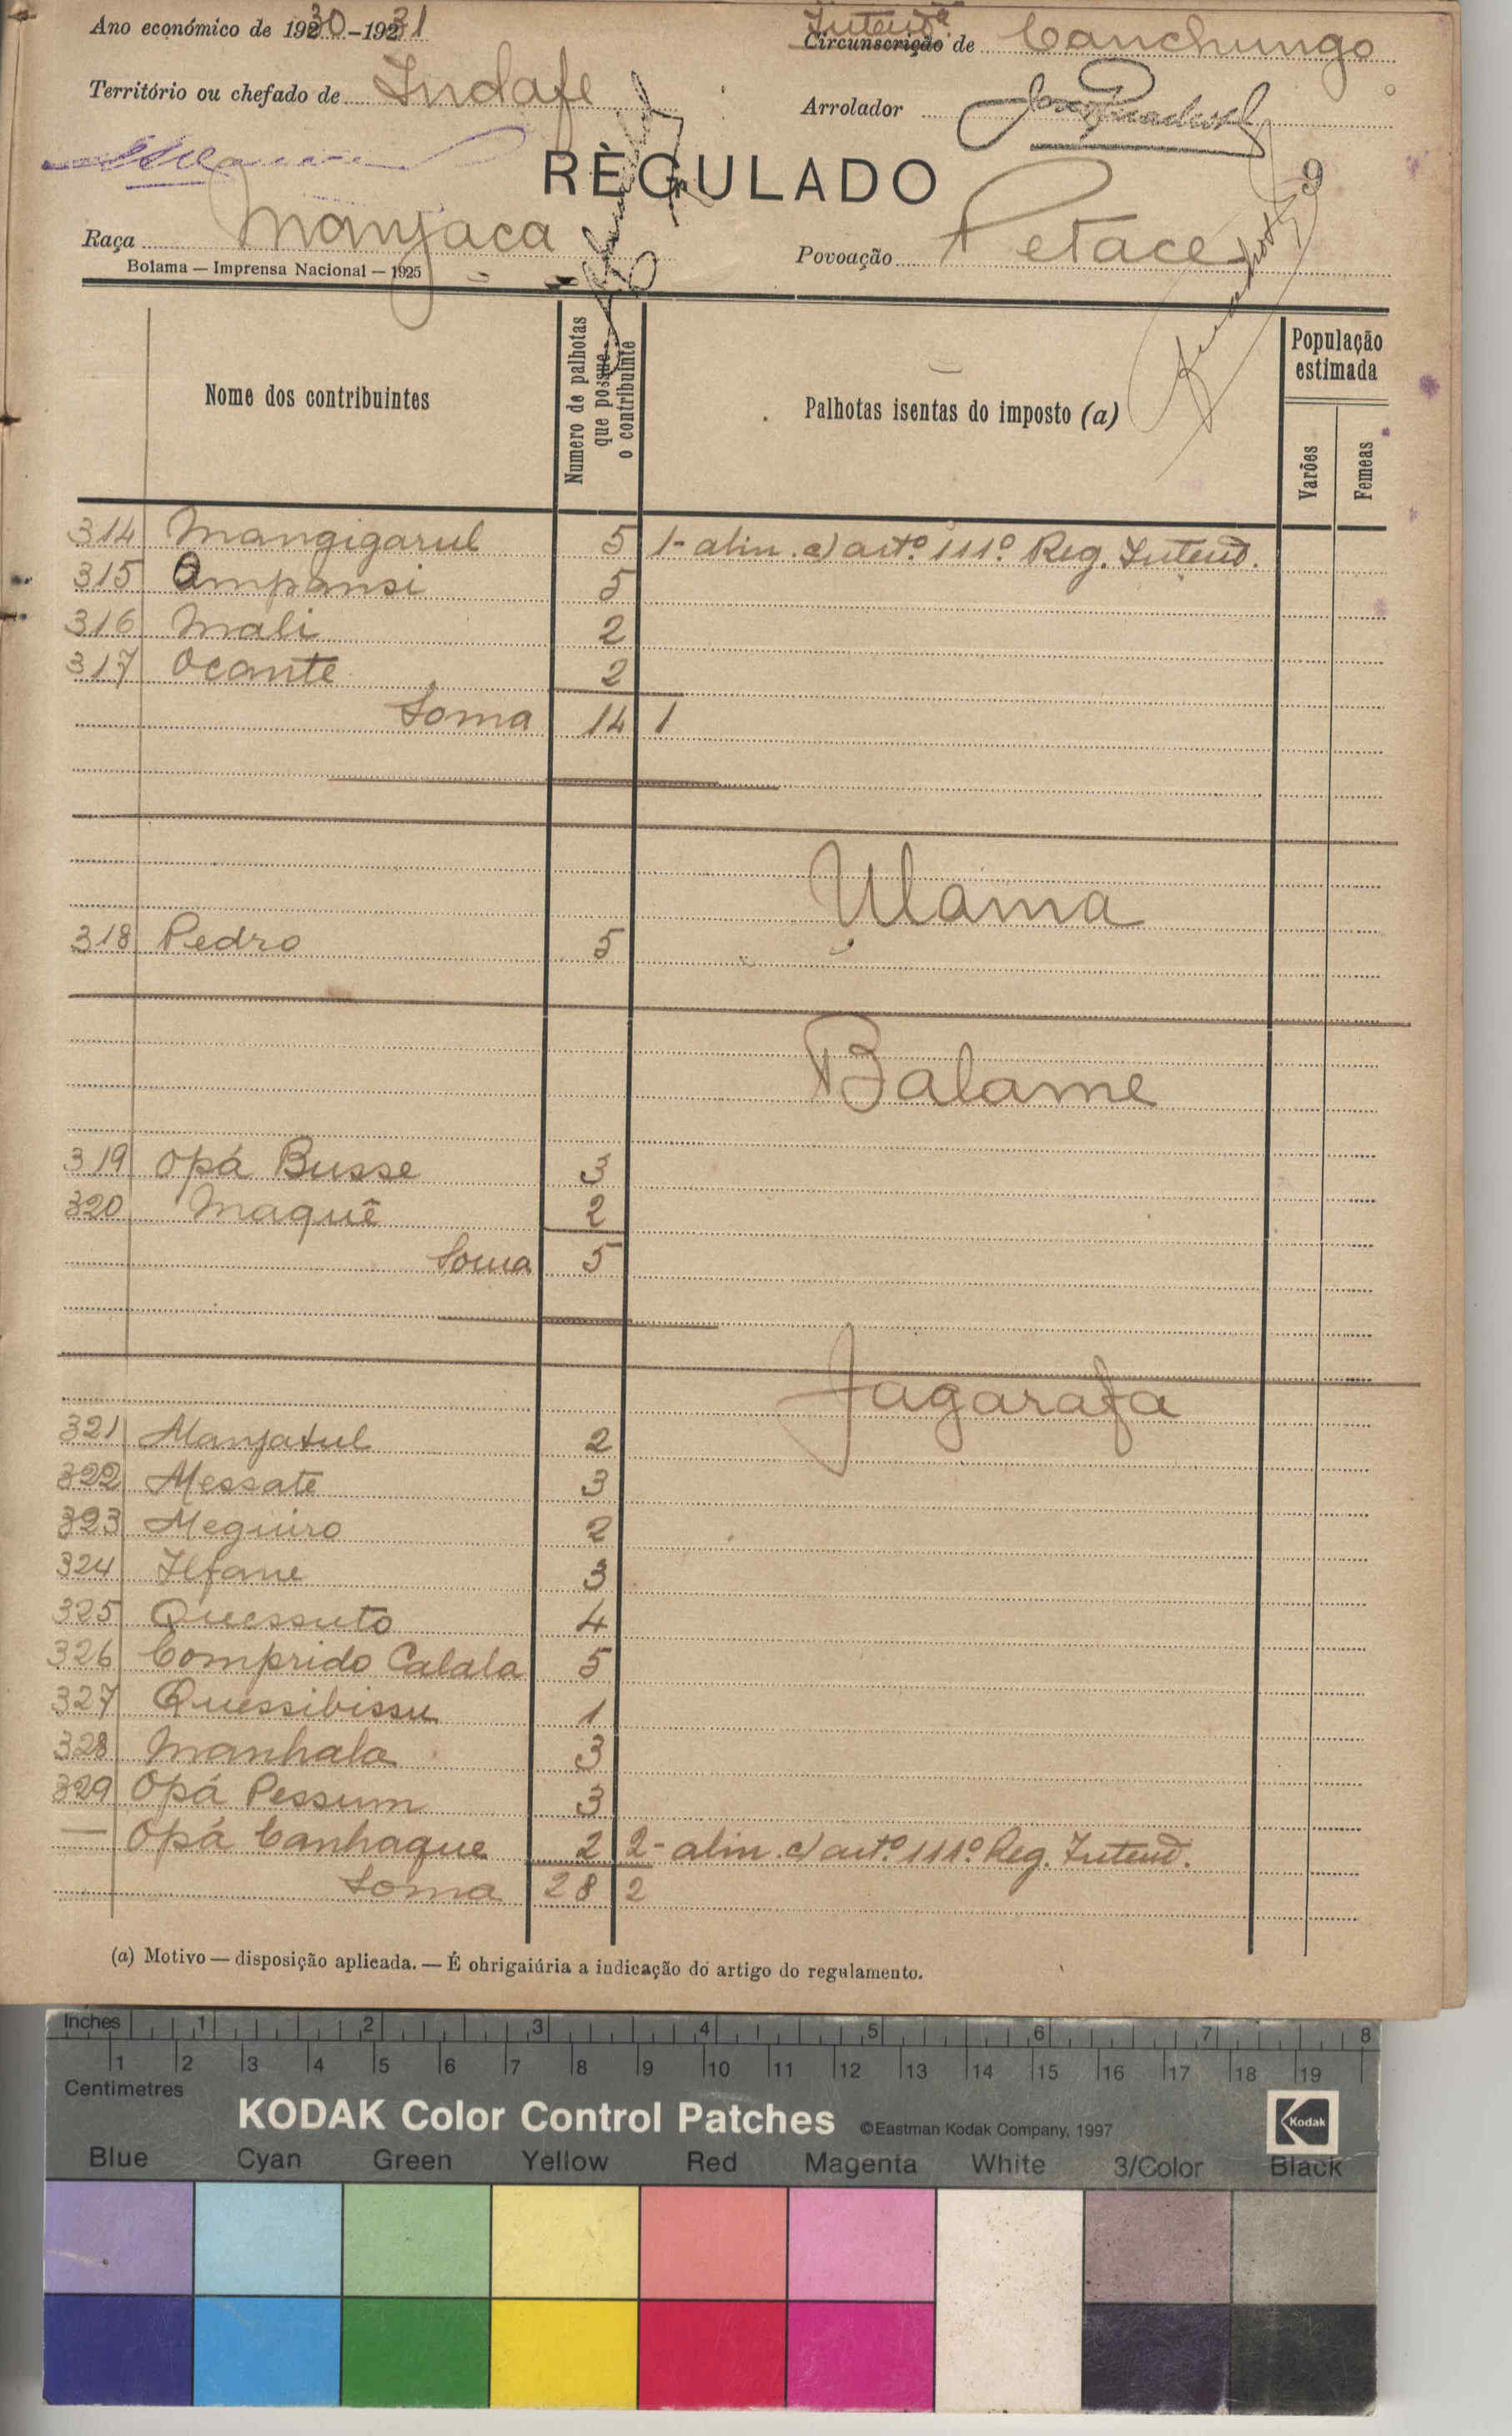 Ano económico de 1930-1931
Intendª
Circunscrição de Canchungo
Território ou chefado de Indafe
Arrolador
RÈGULADO
9
Raça Manjaca
Povoação Petace
Bolama — Imprensa Nacional — 1925
Nome dos contribuintes
Numero de palhotas que possue o contribuinte
Palhotas isentas do imposto (a)
População estimada
Varões
Femeas
314 Mangigarul 5 1- alin. c) artº 111º Reg. Intend.
315 Ampansi 5
316 Mali 2
317 Ocante 2
Soma 14 1
Ulama
318 Pedro 5
Balame
319 Opá Busse 3
320 Maquê 2
Soma 5
Jagarafa
321 Manjatul 2
322 Messate 3
323 Meguiro 2
324 Ilfane 3
325 Quessuto 4
326 Comprido Calala 5
327 Quessibissu 1
328 Manhala 3
329 Opá Pessum 3
— Opá Canhaque 2 2- alin. c) artº 111º Reg. Intend.
Soma 28 2
(a) Motivo — disposição aplicada. — É obrigaiúria a indicação do artigo do regulamento.
Inches 1 2 3 4 5 6 7 8
1 2 3 4 5 6 7 8 9 10 11 12 13 14 15 16 17 18 19
Centimetres
KODAK Color Control Patches ©Eastman Kodak Company, 1997 Kodak
Blue Cyan Green Yellow Red Magenta White 3/Color Black